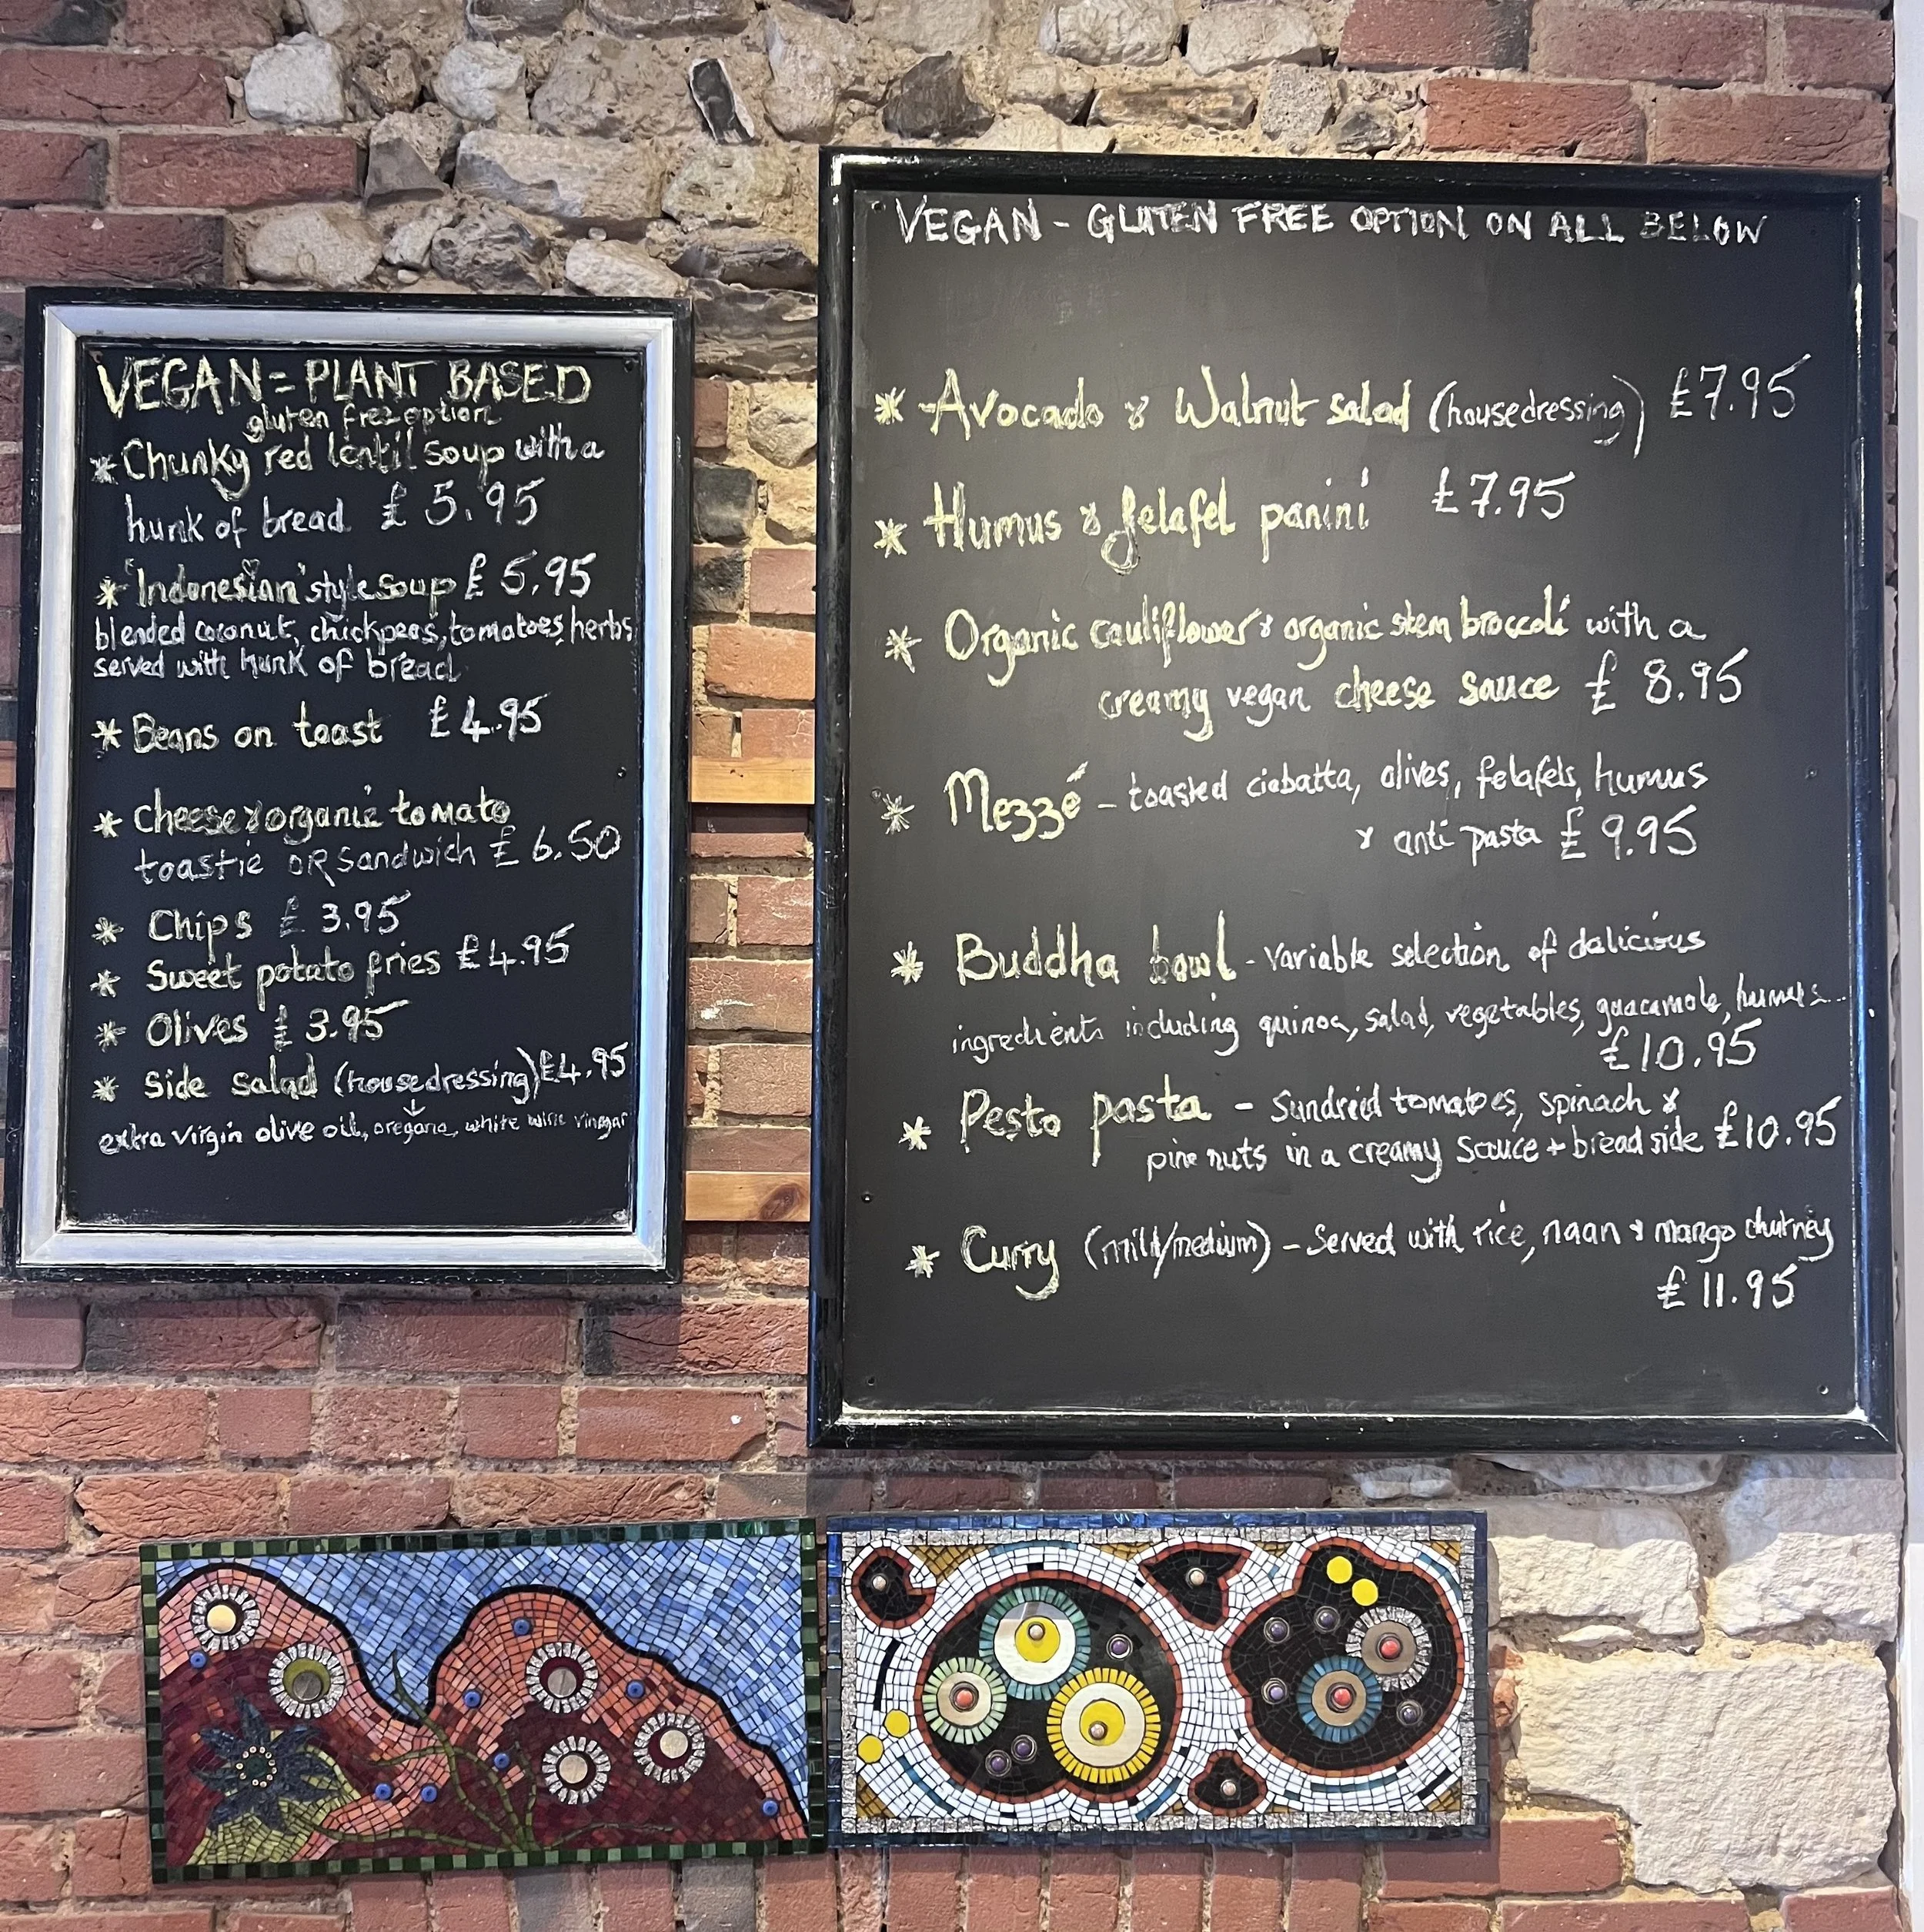 VEGAN = PLANT BASED
gluten free option
* Chunky red lentil soup with a
hunk of bread £5.95
* 'Indonesian' style soup £5.95
blended coconut, chickpeas, tomatoes, herbs
served with hunk of bread
* Beans on toast £4.95
* Cheese & organic tomato
toastie OR Sandwich £6.50
* Chips £3.95
* Sweet potato fries £4.95
* Olives £3.95
* Side Salad (house dressing) £4.95
extra virgin olive oil, oregano, white wine vinegar
VEGAN - GLUTEN FREE OPTION ON ALL BELOW
* Avocado & Walnut salad (house dressing) £7.95
* Humus & felafel panini £7.95
* Organic cauliflower & organic stem broccoli with a
creamy vegan cheese sauce £8.95
* Mezzé - toasted ciabatta, olives, felafels, humus
& anti pasta £9.95
* Buddha bowl - variable selection of delicious
ingredients including quinoa, salad, vegetables, guacamole, humus...
£10.95
* Pesto pasta - Sundreid tomatoes, spinach &
pine nuts in a creamy sauce + bread side £10.95
* Curry (mild/medium) - Served with rice, naan & mango chutney
£11.95